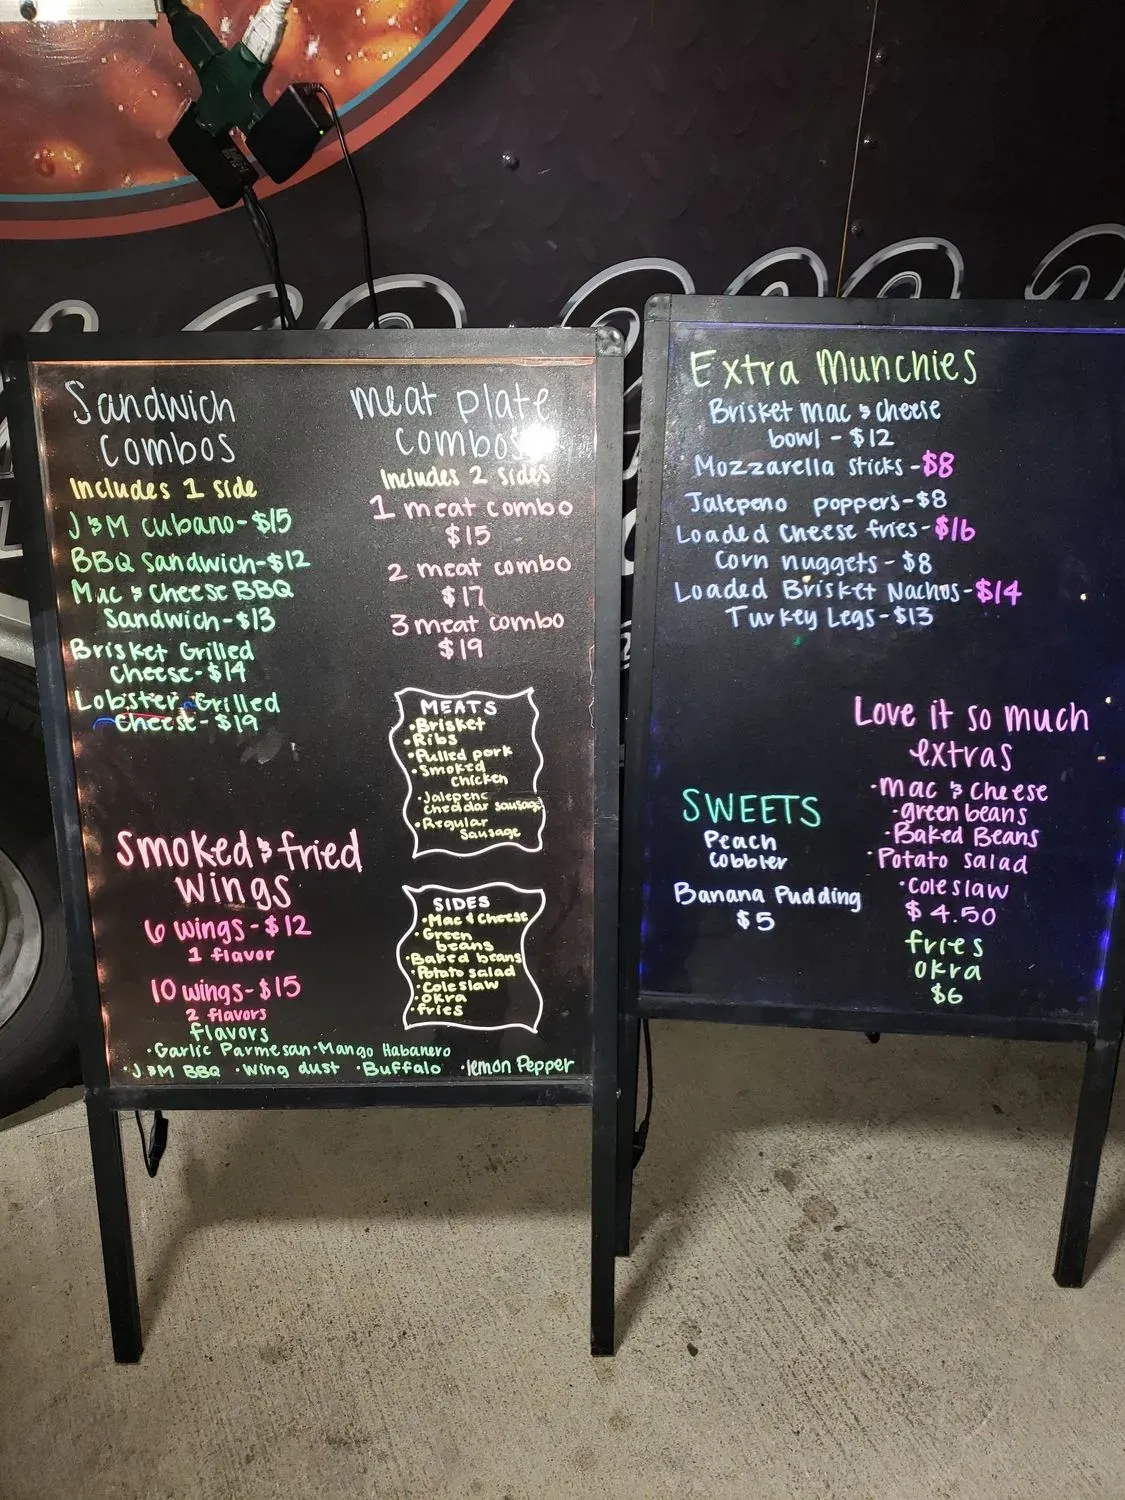 Sandwich
Combos
Includes 1 side
J & M Cubano - $15
BBQ Sandwich - $12
Mac & Cheese BBQ
Sandwich - $13
Brisket Grilled
Cheese - $14
Lobster Grilled
Cheese - $19
Smoked & fried
wings
6 wings - $12
1 flavor
10 wings - $15
2 flavors
flavors
· Garlic Parmesan · Mango Habanero
· J & M BBQ · Wing dust · Buffalo · lemon Pepper
meat plate
combos
Includes 2 sides
1 meat combo
$15
2 meat combo
$17
3 meat combo
$19
MEATS
· Brisket
· Ribs
· Pulled pork
· Smoked
Chicken
· Jalepeno
cheddar sausage
· Regular
Sausage
SIDES
· Mac & Cheese
· Green
beans
· Baked beans
· Potato salad
· Coleslaw
· Okra
· fries
Extra Munchies
Brisket mac & cheese
bowl - $12
Mozzarella sticks - $8
Jalepeno poppers - $8
Loaded Cheese fries - $16
Corn nuggets - $8
Loaded Brisket Nachos - $14
Turkey Legs - $13
SWEETS
Peach
Cobbler
Banana Pudding
$5
Love it so much
extras
· Mac & Cheese
· green beans
· Baked Beans
· Potato salad
· Coleslaw
$4.50
fries
okra
$6